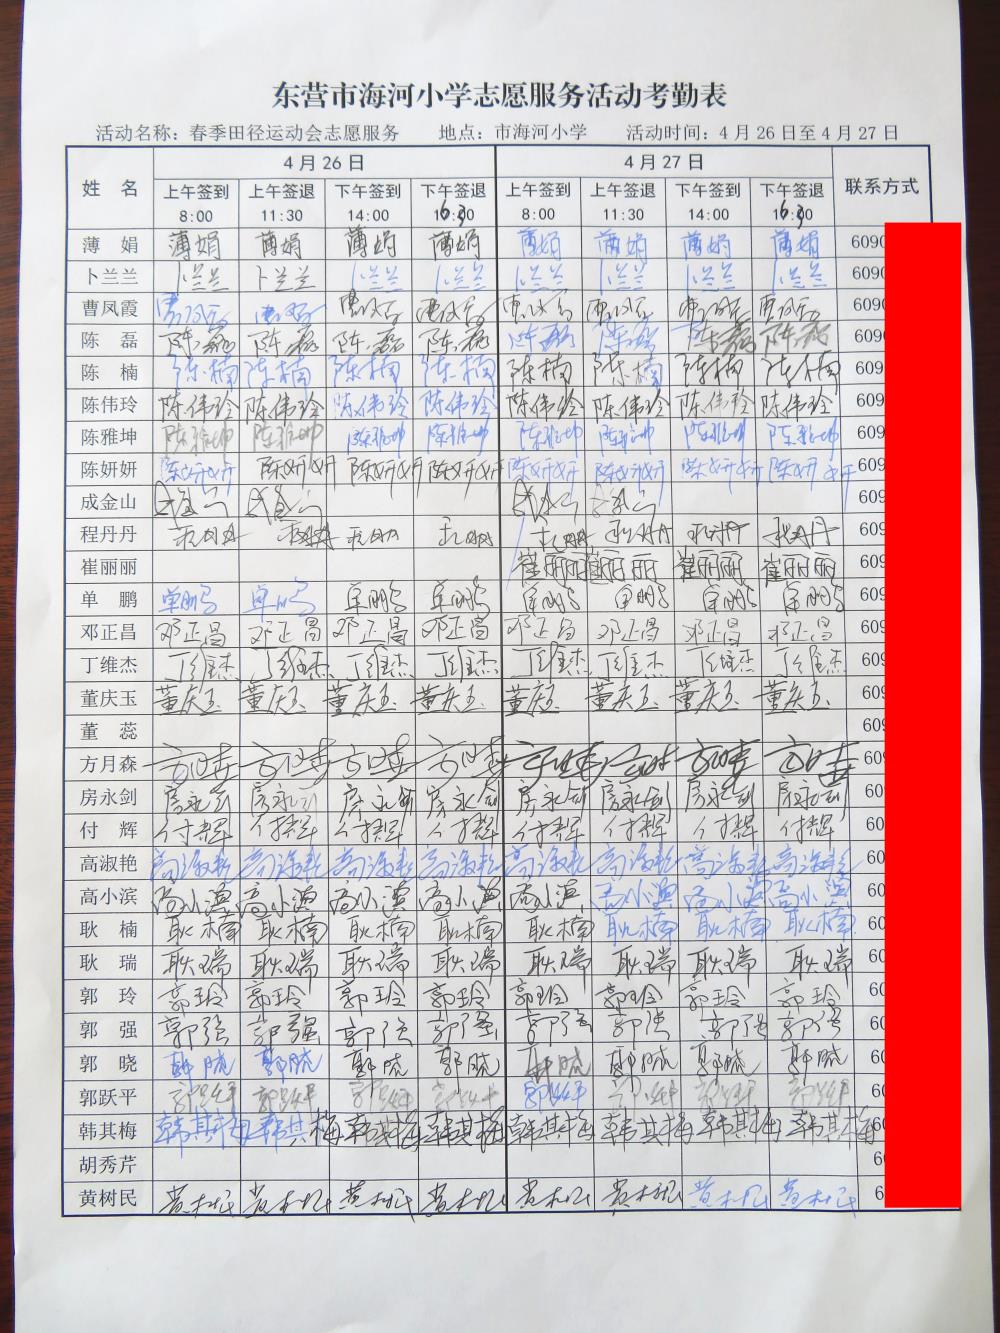 东营市海河小学志愿服务活动考勤表
活动名称：春季田径运动会志愿服务 地点：市海河小学 活动时间：4月26日至4月27日
姓 名 4月26日 4月27日 联系方式
上午签到 上午签退 下午签到 下午签退 上午签到 上午签退 下午签到 下午签退
8:00 11:30 14:00 16:30 8:00 11:30 14:00 16:30
薄 娟 薄娟 薄娟 薄娟 薄娟 薄娟 薄娟 薄娟 薄娟 6090
卜兰兰 卜兰兰 卜兰兰 卜兰兰 卜兰兰 卜兰兰 卜兰兰 卜兰兰 卜兰兰 6090
曹凤霞 曹凤霞 曹凤霞 曹凤霞 曹凤霞 曹凤霞 曹凤霞 曹凤霞 曹凤霞 6090
陈 磊 陈磊 陈磊 陈磊 陈磊 陈磊 陈磊 陈磊 陈磊 6090
陈 楠 陈楠 陈楠 陈楠 陈楠 陈楠 陈楠 陈楠 陈楠 6090
陈伟玲 陈伟玲 陈伟玲 陈伟玲 陈伟玲 陈伟玲 陈伟玲 陈伟玲 陈伟玲 609
陈雅坤 陈雅坤 陈雅坤 陈雅坤 陈雅坤 陈雅坤 陈雅坤 陈雅坤 陈雅坤 609
陈妍妍 陈妍妍 陈妍妍 陈妍妍 陈妍妍 陈妍妍 陈妍妍 陈妍妍 陈妍妍 609
成金山 成金山 成金山 成金山 成金山 609
程丹丹 程丹丹 程丹丹 程丹丹 程丹丹 程丹丹 程丹丹 程丹丹 程丹丹 609
崔丽丽 崔丽丽 崔丽丽 崔丽丽 崔丽丽 609
单 鹏 单鹏 单鹏 单鹏 单鹏 单鹏 单鹏 单鹏 单鹏 609
邓正昌 邓正昌 邓正昌 邓正昌 邓正昌 邓正昌 邓正昌 邓正昌 邓正昌 609
丁维杰 丁维杰 丁维杰 丁维杰 丁维杰 丁维杰 丁维杰 丁维杰 丁维杰 609
董庆玉 董庆玉 董庆玉 董庆玉 董庆玉 董庆玉 董庆玉 董庆玉 董庆玉 609
董 蕊 609
方月森 方月森 方月森 方月森 方月森 方月森 方月森 方月森 方月森 609
房永剑 房永剑 房永剑 房永剑 房永剑 房永剑 房永剑 房永剑 房永剑 609
付 辉 付辉 付辉 付辉 付辉 付辉 付辉 付辉 付辉 60
高淑艳 高淑艳 高淑艳 高淑艳 高淑艳 高淑艳 高淑艳 高淑艳 高淑艳 60
高小滨 高小滨 高小滨 高小滨 高小滨 高小滨 高小滨 高小滨 高小滨 60
耿 楠 耿楠 耿楠 耿楠 耿楠 耿楠 耿楠 耿楠 耿楠 60
耿 瑞 耿瑞 耿瑞 耿瑞 耿瑞 耿瑞 耿瑞 耿瑞 耿瑞 60
郭 玲 郭玲 郭玲 郭玲 郭玲 郭玲 郭玲 郭玲 郭玲 60
郭 强 郭强 郭强 郭强 郭强 郭强 郭强 郭强 郭强 60
郭 晓 郭晓 郭晓 郭晓 郭晓 郭晓 郭晓 郭晓 郭晓 60
郭跃平 郭跃平 郭跃平 郭跃平 郭跃平 郭跃平 郭跃平 郭跃平 郭跃平 60
韩其梅 韩其梅 韩其梅 韩其梅 韩其梅 韩其梅 韩其梅 韩其梅 韩其梅 60
胡秀芹 6
黄树民 黄树民 黄树民 黄树民 黄树民 黄树民 黄树民 黄树民 黄树民 6